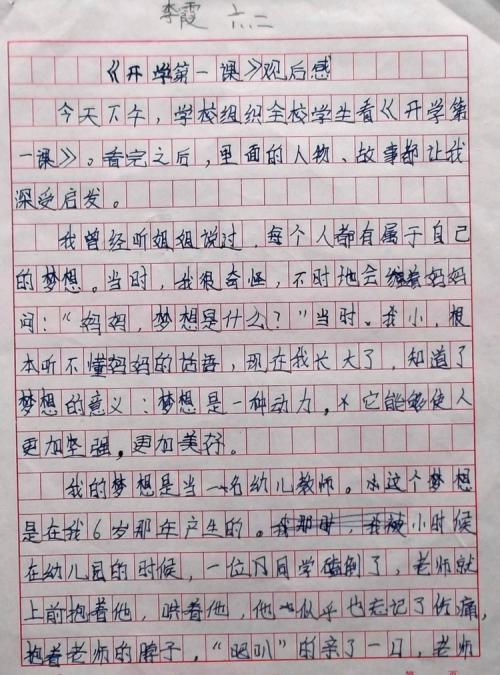 李霞 六.二
《开学第一课》观后感
今天下午，学校组织全校学生看《开学第
一课》。看完之后，里面的人物、故事都让我
深受启发。
我曾经听姐姐说过，每个人都有属于自己
的梦想。当时，我很奇怪，不时地会缠着妈妈
问：“妈妈，梦想是什么？”当时。我小，根
本听不懂妈妈的话语，现在我长大了，知道了
梦想的意义：梦想是一种动力。它能够使人
更加坚强。更加美好。
我的梦想是当一名幼儿教师。这个梦想
是在我6岁那年产生的。小时候
在幼儿园的时候，一位同学碰倒了，老师就
上前抱着他，哄着他，他似乎也忘记了伤痛，
抱着老师的脖子，“吧叽”的亲了一口，老师